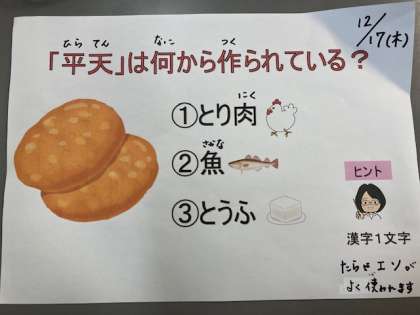 12/17(木)
ひら てん なに つく
「平天」は何から作られている？
にく
①とり肉
さかな
②魚
③とうふ
ヒント
漢字1文字
たらやエソが
よく使われます